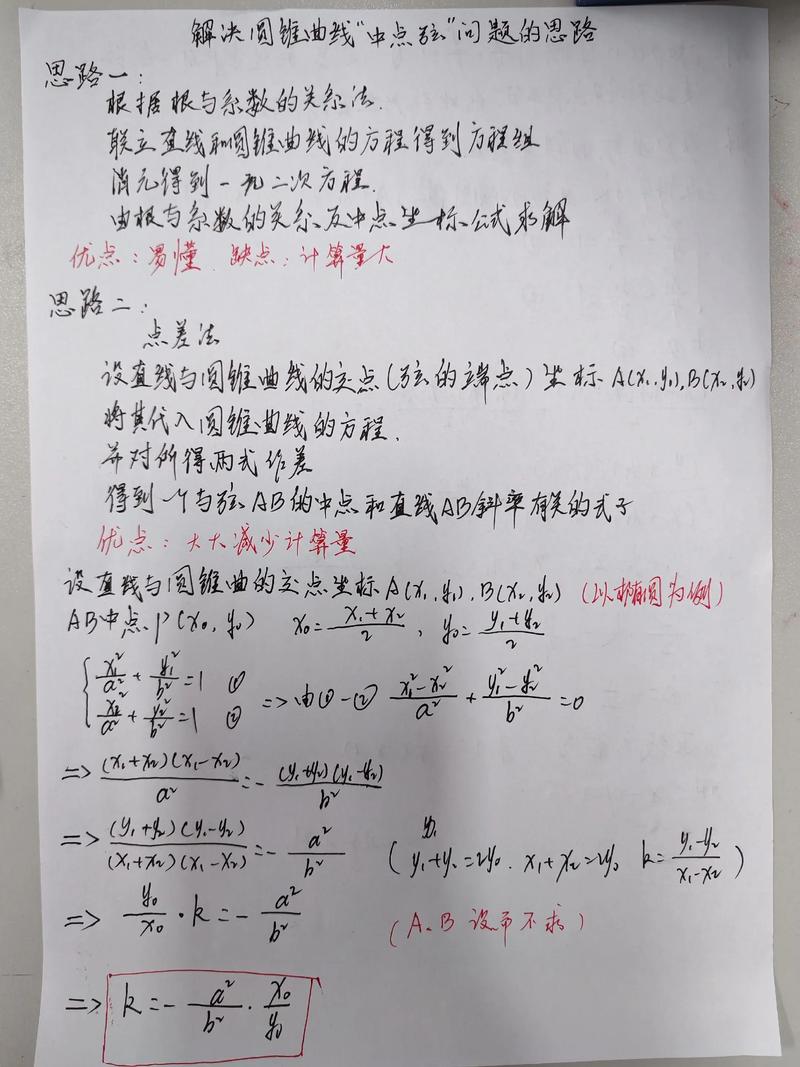 解决圆锥曲线"中点弦"问题的思路
思路一:
根据根与系数的关系法.
联立直线和圆锥曲线的方程得到方程组
消元得到一元二次方程.
由根与系数的关系及中点坐标公式求解
优点:易懂. 缺点:计算量大
思路二:
点差法
设直线与圆锥曲线的交点(弦的端点)坐标A(x₁,y₁),B(x₂,y₂)
将其代入圆锥曲线的方程.
并对所得两式作差
得到一个与弦AB的中点和直线AB斜率有关的式子
优点:大大减少计算量
设直线与圆锥曲的交点坐标A(x₁,y₁),B(x₂,y₂) (以椭圆为例)
AB中点P(x₀,y₀) x₀=(x₁+x₂)/2, y₀=(y₁+y₂)/2
x₁²/a²+y₁²/b²=1 ① => 由①-② (x₁²-x₂²)/a²+(y₁²-y₂²)/b²=0
x₂²/a²+y₂²/b²=1 ②
=> (x₁+x₂)(x₁-x₂)/a²=-(y₁+y₂)(y₁-y₂)/b²
=> (y₁+y₂)(y₁-y₂)/(x₁+x₂)(x₁-x₂)=-a²/b² (y₁+y₂=2y₀. x₁+x₂=2y₀ k=(y₁-y₂)/(x₁-x₂))
=> y₀/x₀·k=-a²/b² (A、B设而不求)
=> k=-a²/b²·x₀/y₀